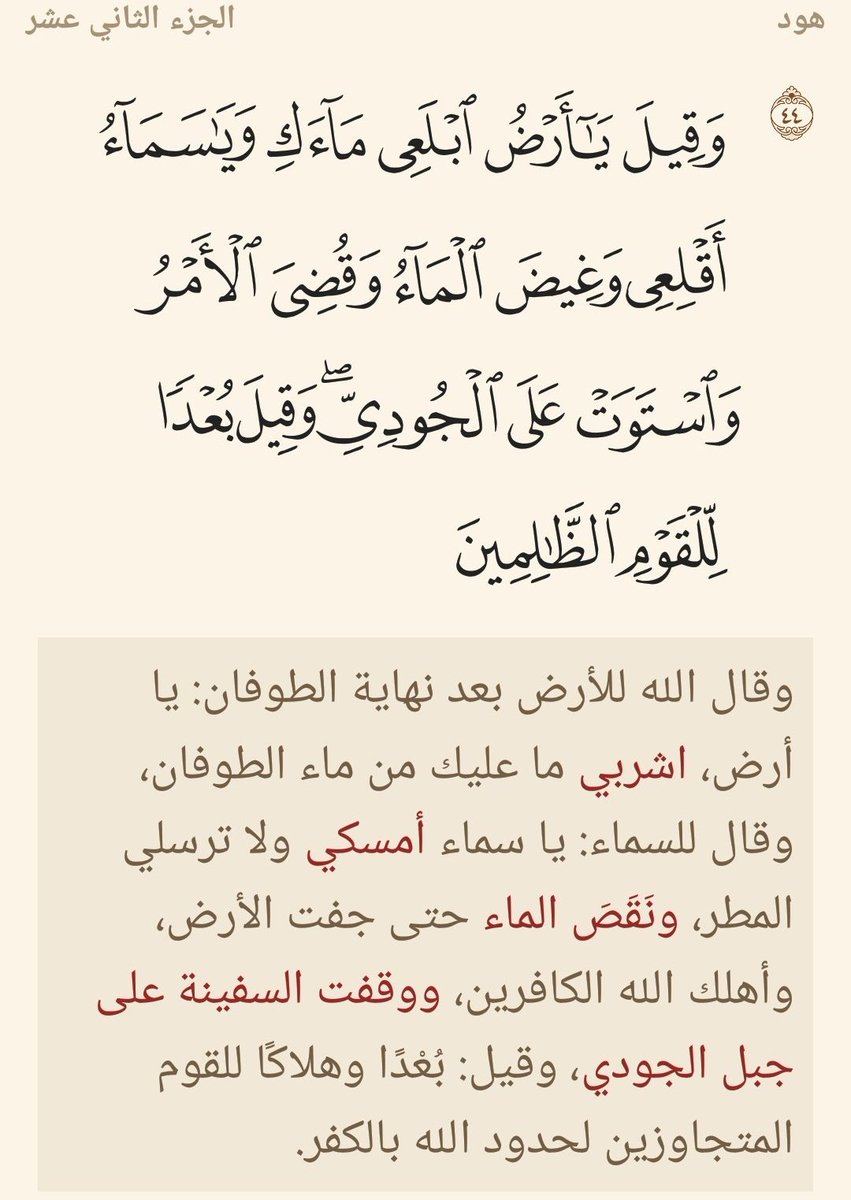 هود
الجزء الثاني عشر
٤٤
وَقِيلَ يَٰٓأَرْضُ ٱبْلَعِى مَآءَكِ وَيَٰسَمَآءُ
أَقْلِعِى وَغِيضَ ٱلْمَآءُ وَقُضِىَ ٱلْأَمْرُ
وَٱسْتَوَتْ عَلَى ٱلْجُودِىِّ ۖ وَقِيلَ بُعْدًا
لِّلْقَوْمِ ٱلظَّٰلِمِينَ
وقال الله للأرض بعد نهاية الطوفان: يا
أرض، اشربي ما عليك من ماء الطوفان،
وقال للسماء: يا سماء أمسكي ولا ترسلي
المطر، ونَقَصَ الماء حتى جفت الأرض،
وأهلك الله الكافرين، ووقفت السفينة على
جبل الجودي، وقيل: بُعْدًا وهلاكًا للقوم
المتجاوزين لحدود الله بالكفر.